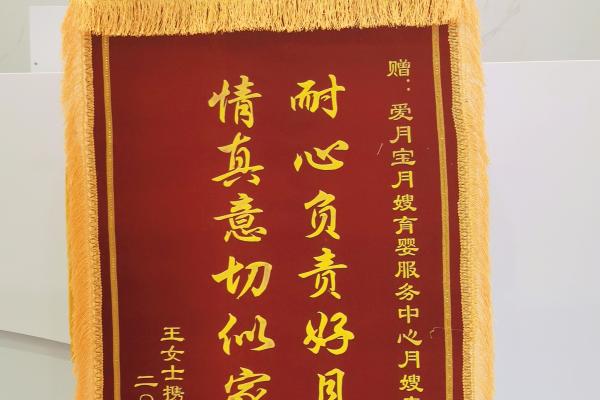 赠：爱月宝月嫂育婴服务中心月嫂
耐心负责好月
情真意切似家
王女士携
二〇